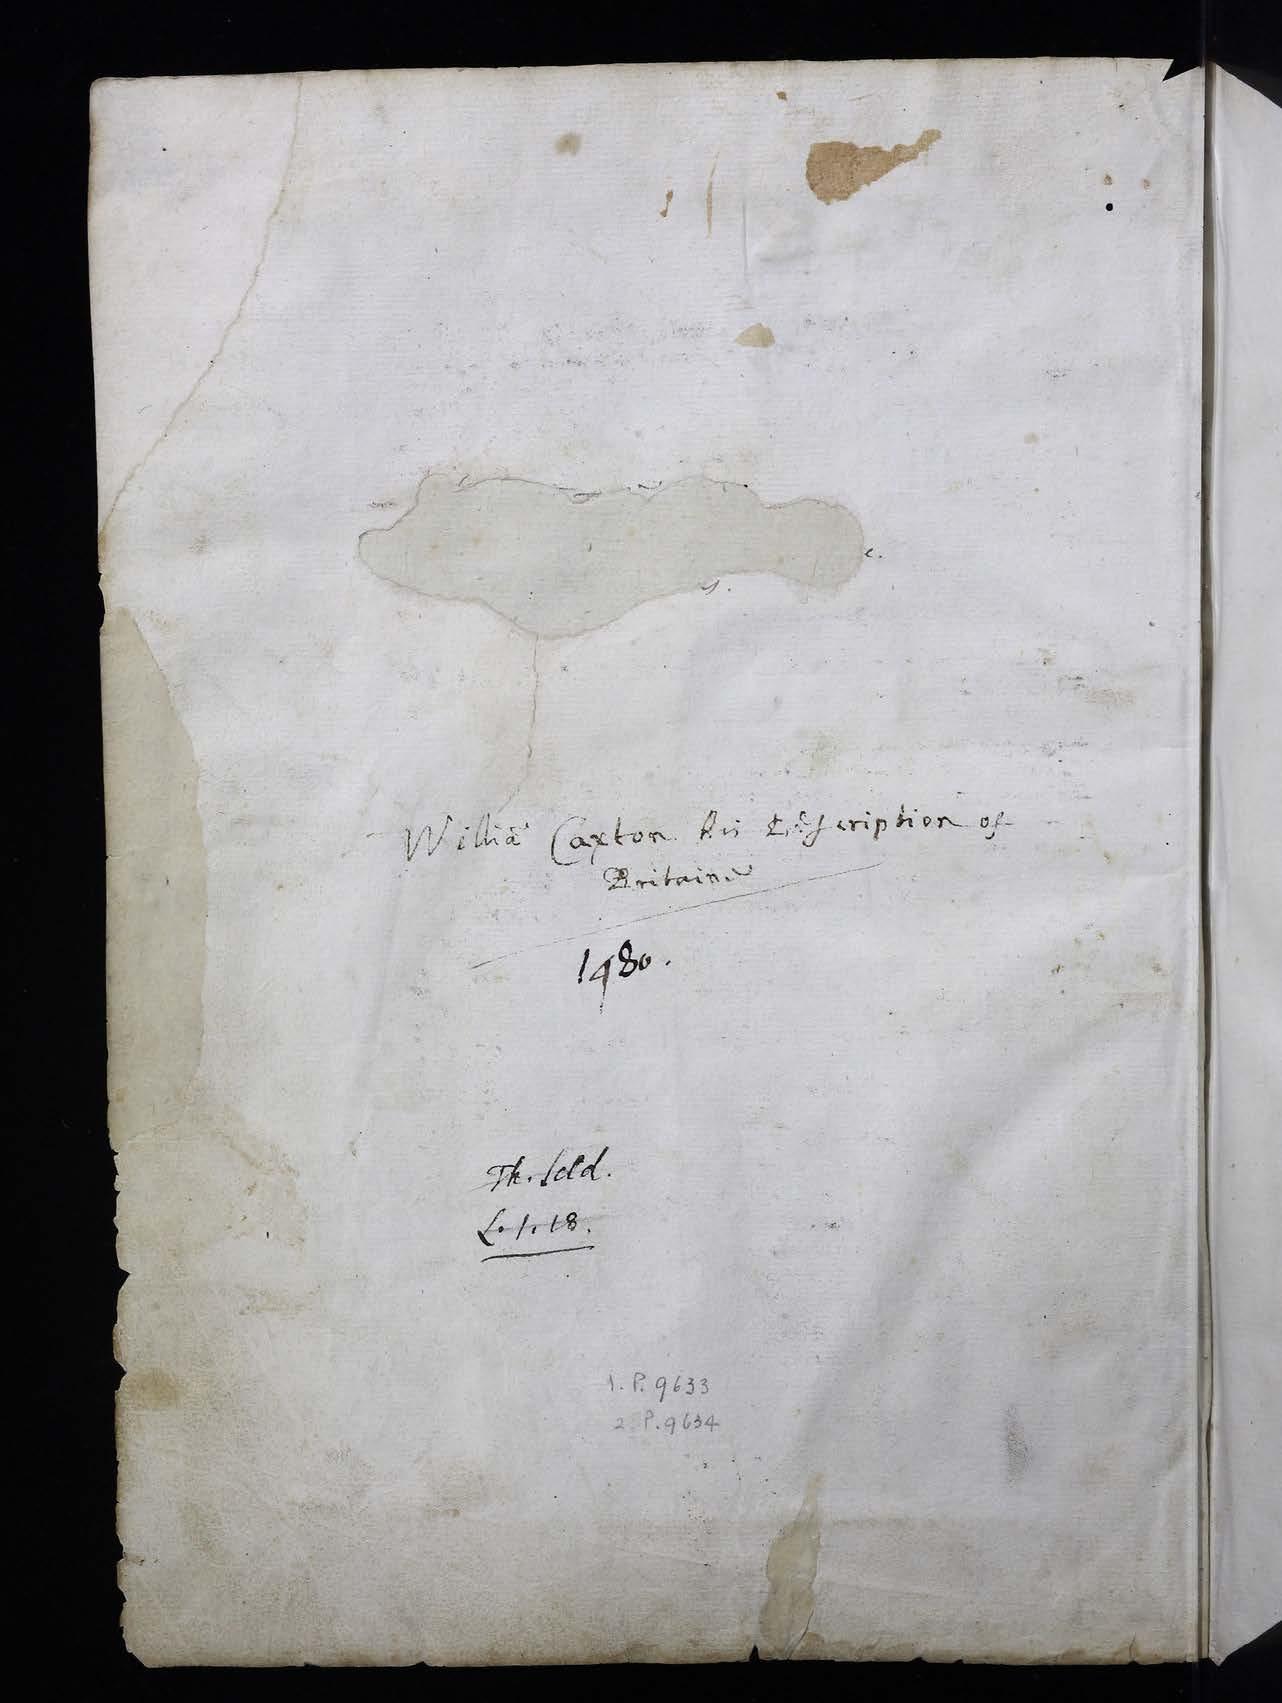 Williā Caxton his description of
Britaine
1480.
Th. Seld.
L. 1. 18.
1. P. 9633
2. P. 9634